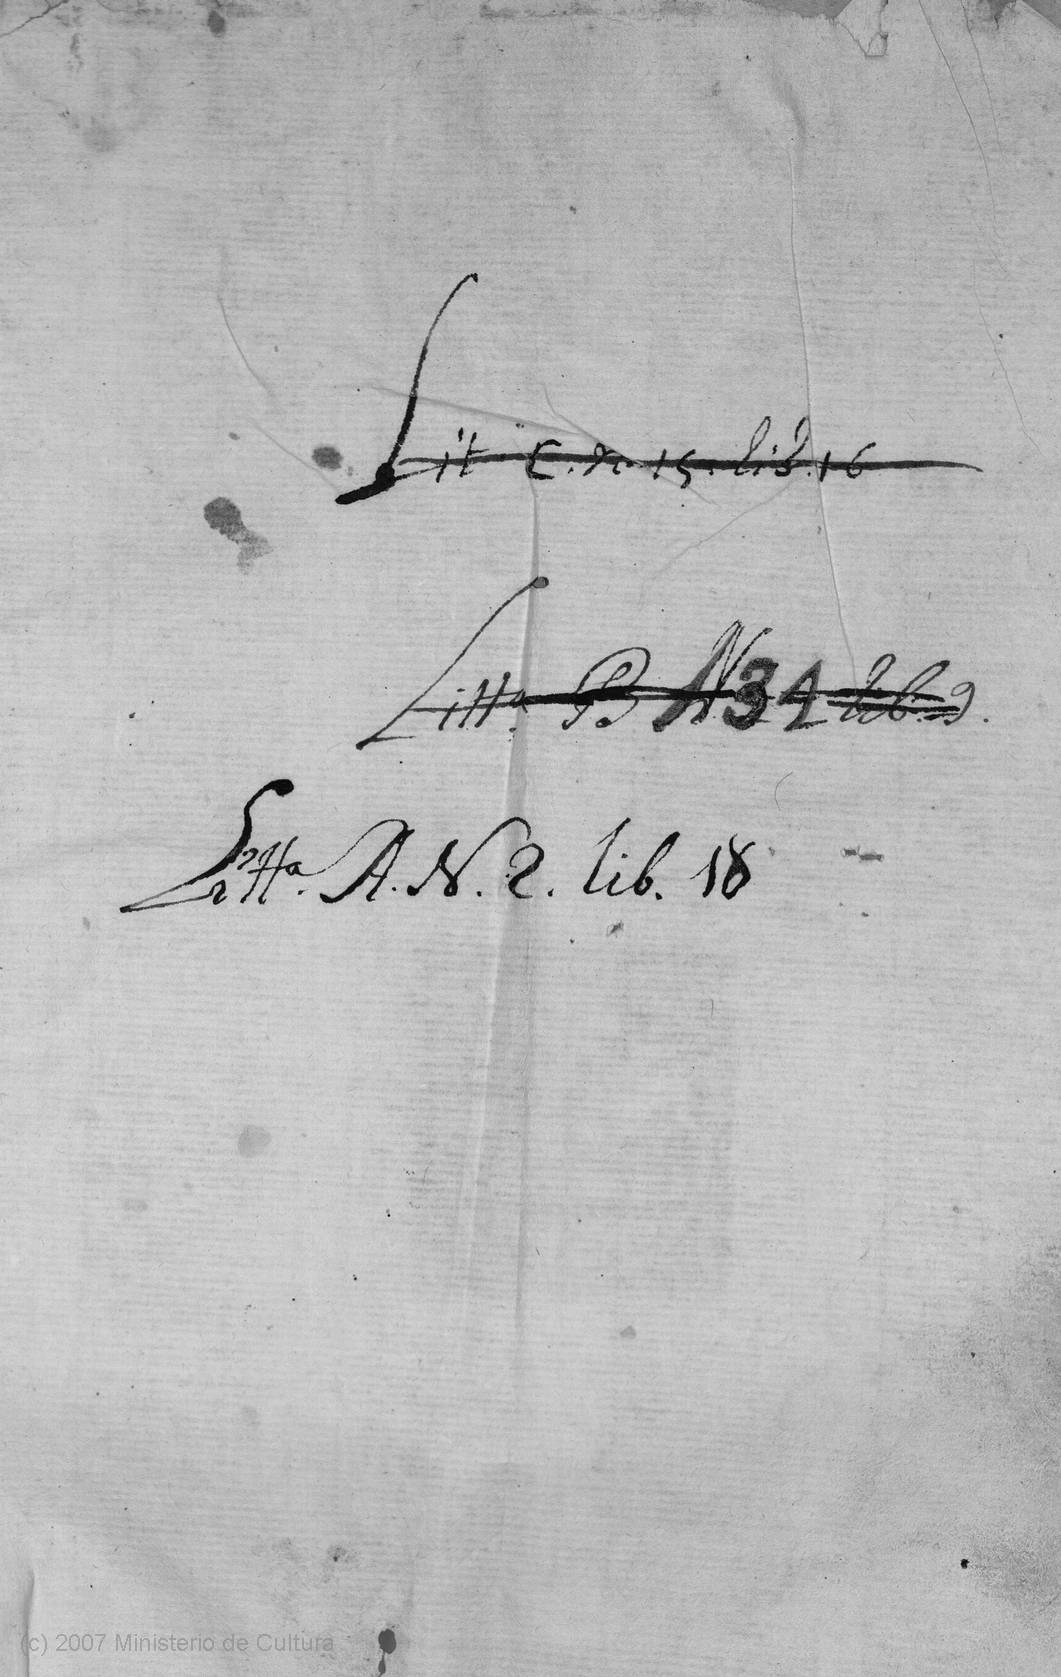 Lit. C. n. 15. lib. 16
Litta. B N. 34 lib. 9.
Litta. A. N. 2. lib. 18
(c) 2007 Ministerio de Cultura